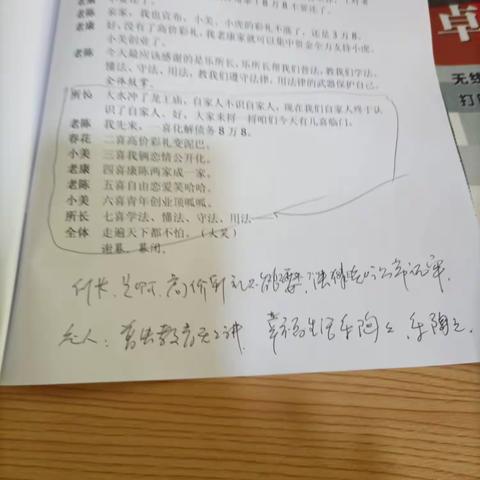 老陈 亲家，我也宣布，小美、小虎的彩礼不涨了，还是3万8。
老康 好，没有了高价彩礼，我老康家就可以集中资金全力支持小虎、
小美创业了。
老陈 今天最应该感谢的是乐所长，乐所长帮我们普法，教我们学法、
懂法、守法、用法，教我们遵守法律，用法律的武器保护自己。
全体鼓掌。
所长 大水冲了龙王庙，自家人不识自家人，现在我们自家人终于认
识了自家人，好，大家来捋一捋咱们今天有几喜临门。
老陈 我先来，一喜化解债务8万8。
春花 二喜高价彩礼变泥巴。
小美 三喜我俩恋情公开化。
老康 四喜康陈两家成一家。
老陈 五喜自由恋爱笑哈哈。
小美 六喜青年创业顶呱呱。
所长 七喜学法、懂法、守法、用法——
全体 走遍天下都不怕。（大笑）
谢幕，幕闭。
所长
高价彩礼
众人：普法教育天天讲 幸福生活乐陶陶、乐陶陶。
卓
无线
打